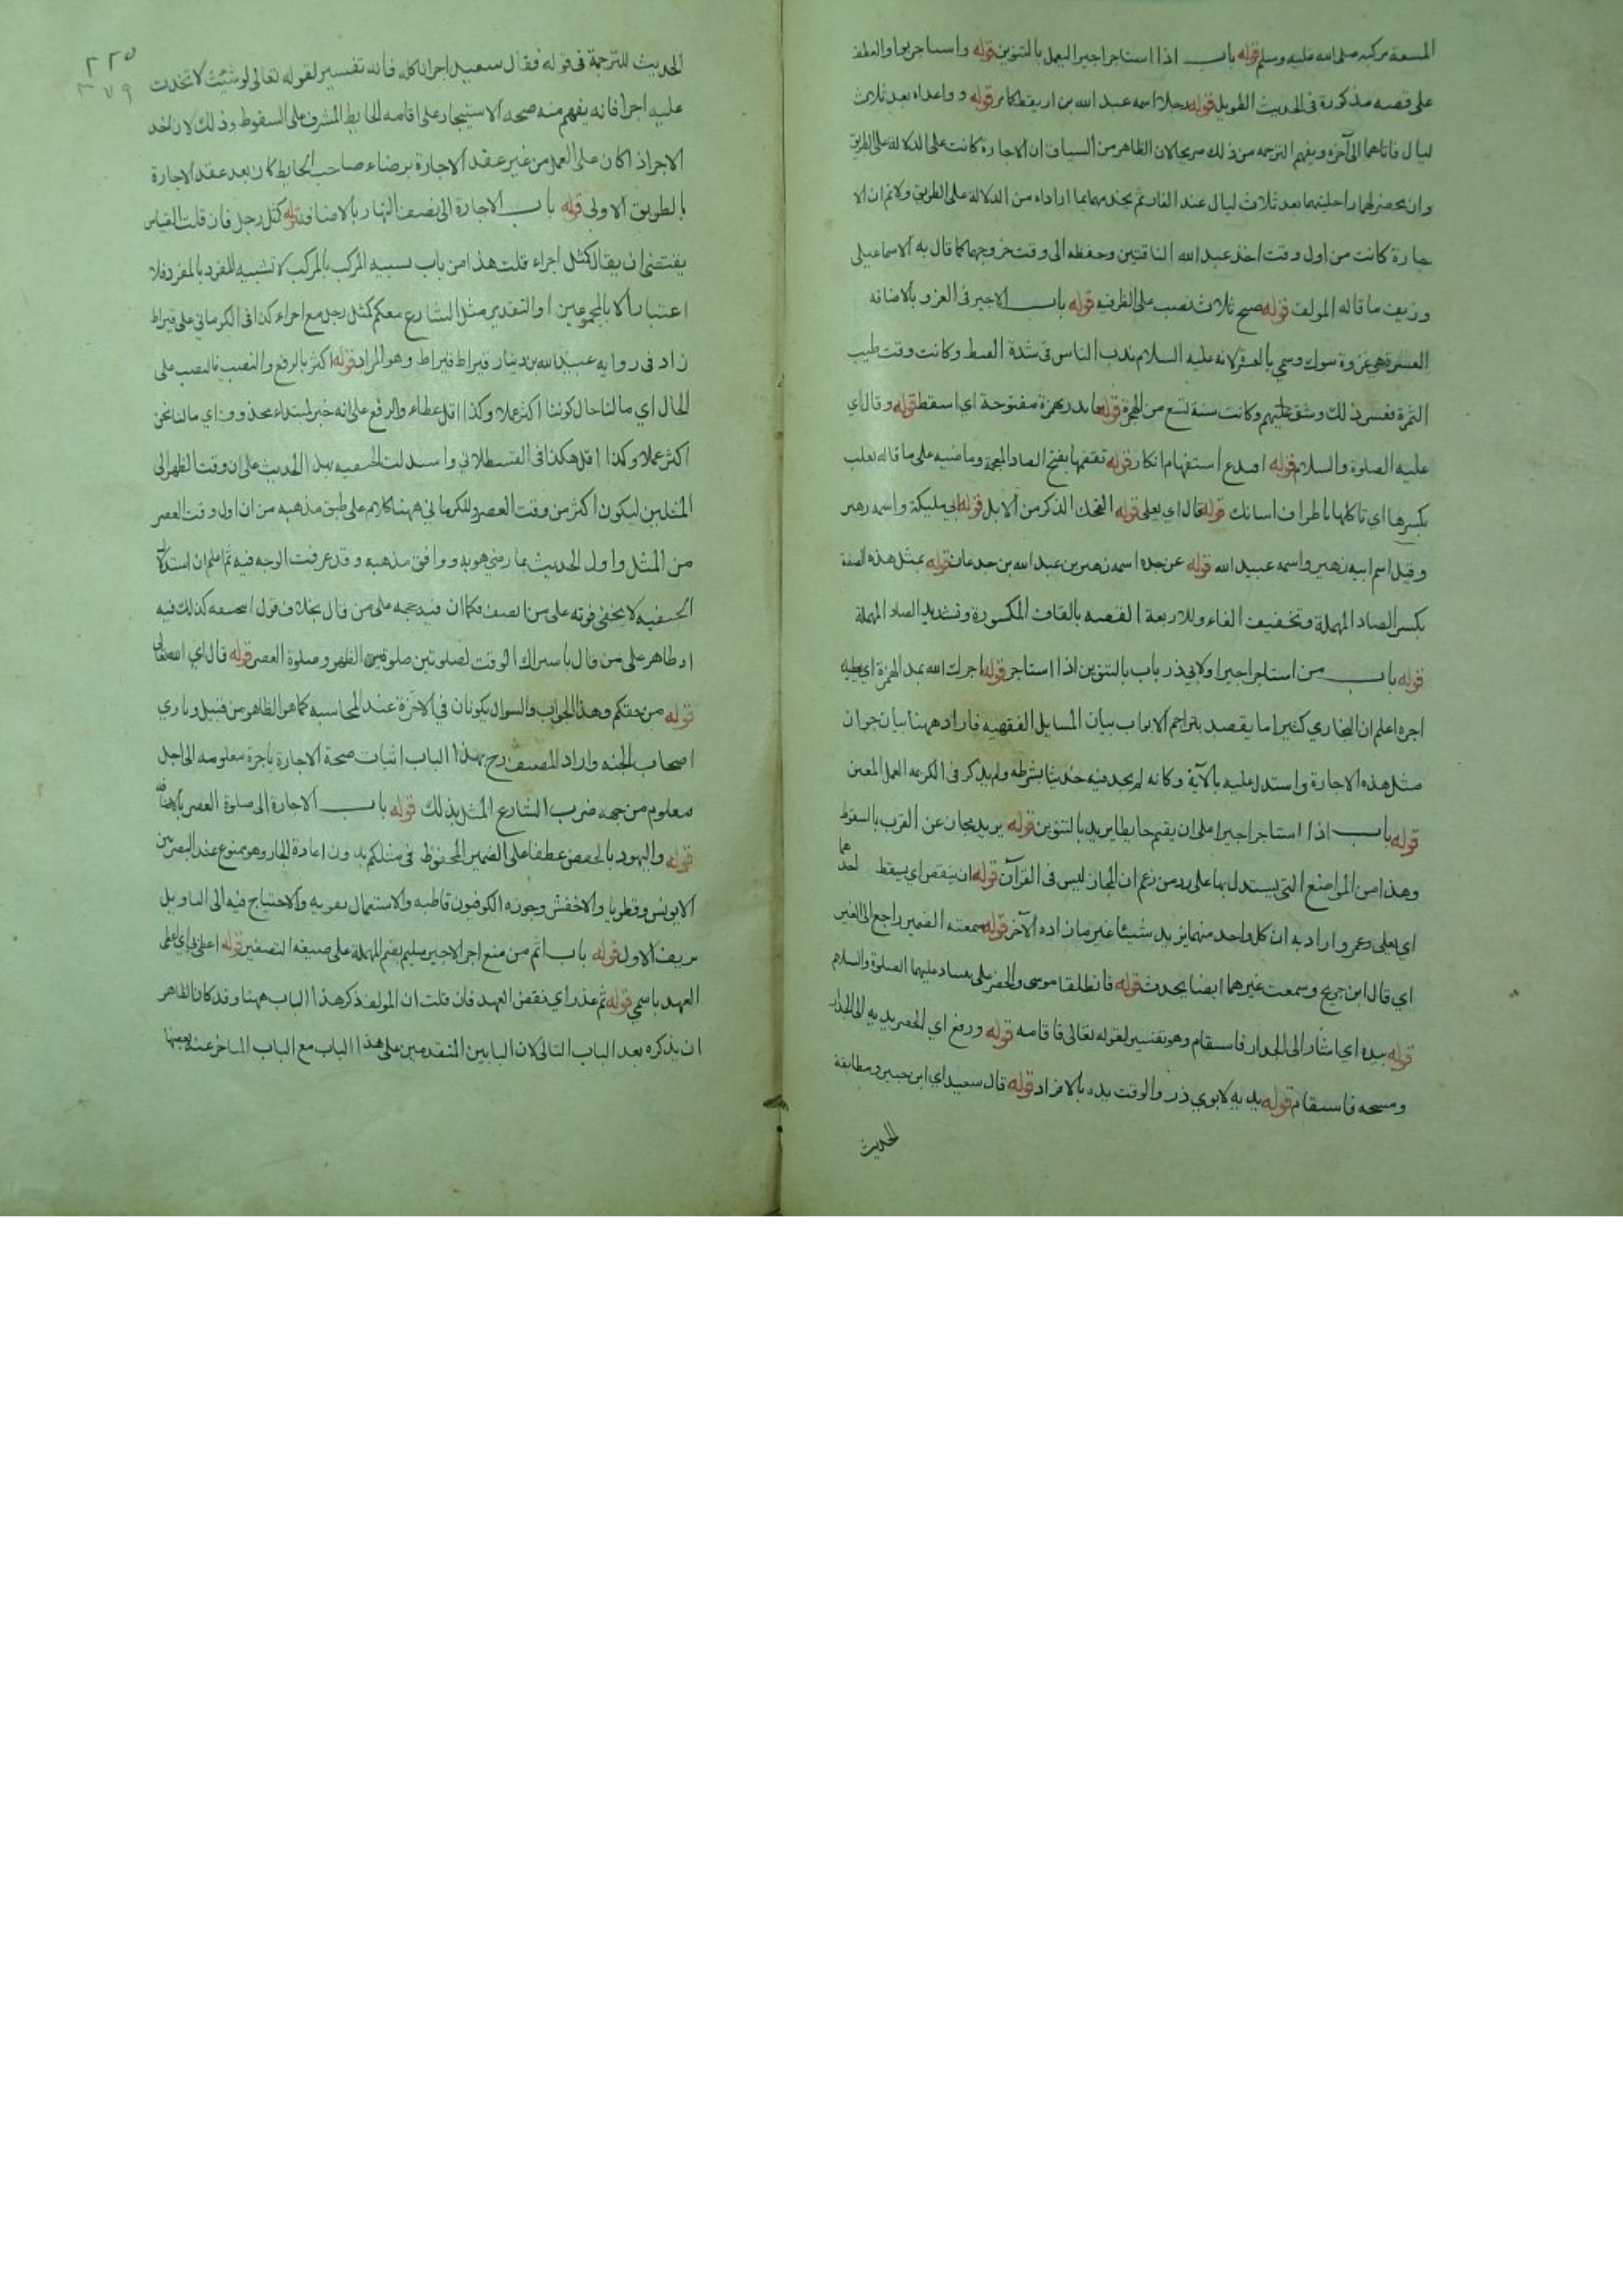 المسعة بركبه صلى الله عليه وسلم قوله باب اذا استاجر اجيرا ليعمل بالتنوين قوله واستاجر بواو العطف
على قصه مذكورة فى الحديث الطويل قوله رجلا اسمه عبد الله بن اريقط كامر قوله وواعداه بعد ثلاث
ليال فاتاهما الى آخره ويفهم الترجمه من ذلك صريحا لان الظاهر من السياق ان الاجارة كانت على الدلالة على الطريق
وان يحضر لهما راحلتيهما بعد ثلاث ليال عند الغار ثم يخدمهما بما اراداه من الدلالة على الطريق ولا نم ان الا
جارة كانت من اول وقت اخذ عبد الله الناقتين وحفظه الى وقت خروجهما كما قال به الاسماعيلى
وزيف ما قاله المولف قوله صبح ثلاث نصب على الظرفيه قوله باب الاجير فى الغزو بالاضافه
العسرة هى غزوة تبوك وسمى بالعسرة لانه عليه السلام ندب الناس فى شدة القيظ وكانت وقت طيب
الثمرة فعسر ذلك وشق عليهم وكانت سنة تسع من الهجرة قوله فاندر بهمزة مفتوحة اي اسقط قوله وقال اي
عليه الصلوة والسلام قوله افيدع استفهام انكار قوله تقضمها بفتح الضاد المعجمة وماضيه على ما قاله ثعلب
بكسرها اي تاكلها باطراف اسنانك قوله قال اي يعلى قوله الفحل الذكر من الابل قوله ابي مليكة واسمه زهير
وقيل اسم ابيه زهير واسمه عبيد الله قوله عن جده اسمه زهير بن عبد الله بن جدعان قوله بمثل هذه الصفة
بكسر الصاد المهملة وتخفيف الفاء وللاربعة القصه بالقاف المكسورة وتشديد الصاد المهملة
قوله باب من استاجر اجيرا ولابي ذر باب بالتنوين اذا استاجر قوله اجرك الله بمد الهمزة اي يعطيه
اجره اعلم ان البخاري كثيرا ما يقصد بتراجم الابواب بيان المسايل الفقهيه فاراد ههنا بيان جواز
مثل هذه الاجارة واستدل عليه بالآية وكانه لم يجد فيه حديثا بشرطه ولم يذكر فى الكريمه العمل المعين
قوله باب اذا استاجر اجيرا على ان يقيم حايطا يريد بالتنوين قوله يريد مجاز عن القرب بالسقوط
وهذا من المواضع التى يستدل بها على رد من زعم ان المجاز ليس فى القرآن قوله ان ينقض اي يسقط احدهما
اي يعلى وعمرو اراد به ان كل واحد منهما يزيد شيئا غير ما زاده الآخر قوله سمعته الضمير راجع الى الغير
اي قال ابن جريج وسمعت غيرهما ايضا يحدث قوله فانطلقا موسى والخضر على نبينا وعليهما الصلوة والسلام
قوله بيده اي اشار الى الجدار فاستقام وهو تفسير لقوله تعالى فاقامه قوله ورفع اي الخضر يديه الى الجدار
ومسحه فاستقام قوله يديه لابوي ذر والوقت يده بالافراد قوله قال سعيد اي ابن جبير ومطابقة
الحديث
٢٢٥
٣٧٩
الحديث للترجمة فى قوله فقال سعيد اجرا ناكله فانه تفسير لقوله تعالى لو شئت لاتخذت
عليه اجرا فانه يفهم منه صحه الاستيجار على اقامه الحايط المشرف على السقوط وذلك لان اخذ
الاجر اذ كان على العمل من غير عقد الاجارة برضاء صاحب الحايط كان بعد عقد الاجارة
بالطريق الاولى قوله باب الاجارة الى نصف النهار بالاضافة قوله كمثل رجل فان قلت القياس
يقتضى ان يقال كمثل اجراء قلت هذا من باب تشبيه المركب بالمركب لا تشبيه المفرد بالمفرد فلا
اعتبار الا بالمجموعين او التقدير مثل الشارع معكم كمثل رجل مع اجراء كذا فى الكرماني على قيراط
زاد فى روايه عبد الله بن دينار قيراط قيراط وهو المراد قوله اكثر بالرفع والنصب فالنصب على
الحال اي مالنا حال كوننا اكثر عملا وكذا اقل عطاء والرفع على انه خبر لمبتداء محذوف اي مالنا نحن
اكثر عملا وكذا اقل هكذا فى القسطلاني واستدلت الحنفيه بهذا الحديث على ان وقت الظهر الى
المثلين ليكون اكثر من وقت العصر وللكرماني ههنا كلام على طبق مذهبه من ان اول وقت العصر
من المثل واول الحديث بما رضي هو به ووافق مذهبه وقد عرفت الوجه فيه ثم اعلم ان استدلال
الحنفيه لا يخفى قوته على من انصف فكما ان فيه حجه على من قال بخلاف قول الحنفيه كذلك فيه
رد ظاهر على من قال باشتراك الوقت لصلوتين صلوتي الظهر وصلوة العصر قوله قال اي الله تعالى
قوله من حقكم وهذا الجواب والسوال يكونان فى الآخرة عند المحاسبه كما هو الظاهر من قنبيل وباري
اصحاب الجنه واراد المصنف رح بهذا الباب اثبات صحة الاجارة باجرة معلومه الى اجل
معلوم من جهه ضرب الشارع المثل بذلك قوله باب الاجارة الى صلوة العصر بالاضافة
قوله واليهود بالخفض عطفا على الضمير المخفوض فى مثلكم بدون اعادة الجار وهو ممنوع عند البصريين
الا يونس وقطربا والاخفش وجوزه الكوفيون قاطبه والاستعمال يقويه والاحتياج فيه الى التاويل
يزيف الاول قوله باب اثم من منع اجر الاجير سليم بضم المهملة على صيغه التصغير قوله اعطى بي اي اعطى
العهد باسمي قوله ثم غدر اي نقض العهد فان قلت ان المولف ذكر هذا الباب ههنا وقد كان الظاهر
ان يذكره بعد الباب التالى لان البابين المتقدمين على هذا الباب مع الباب المتاخر عنه بعضها